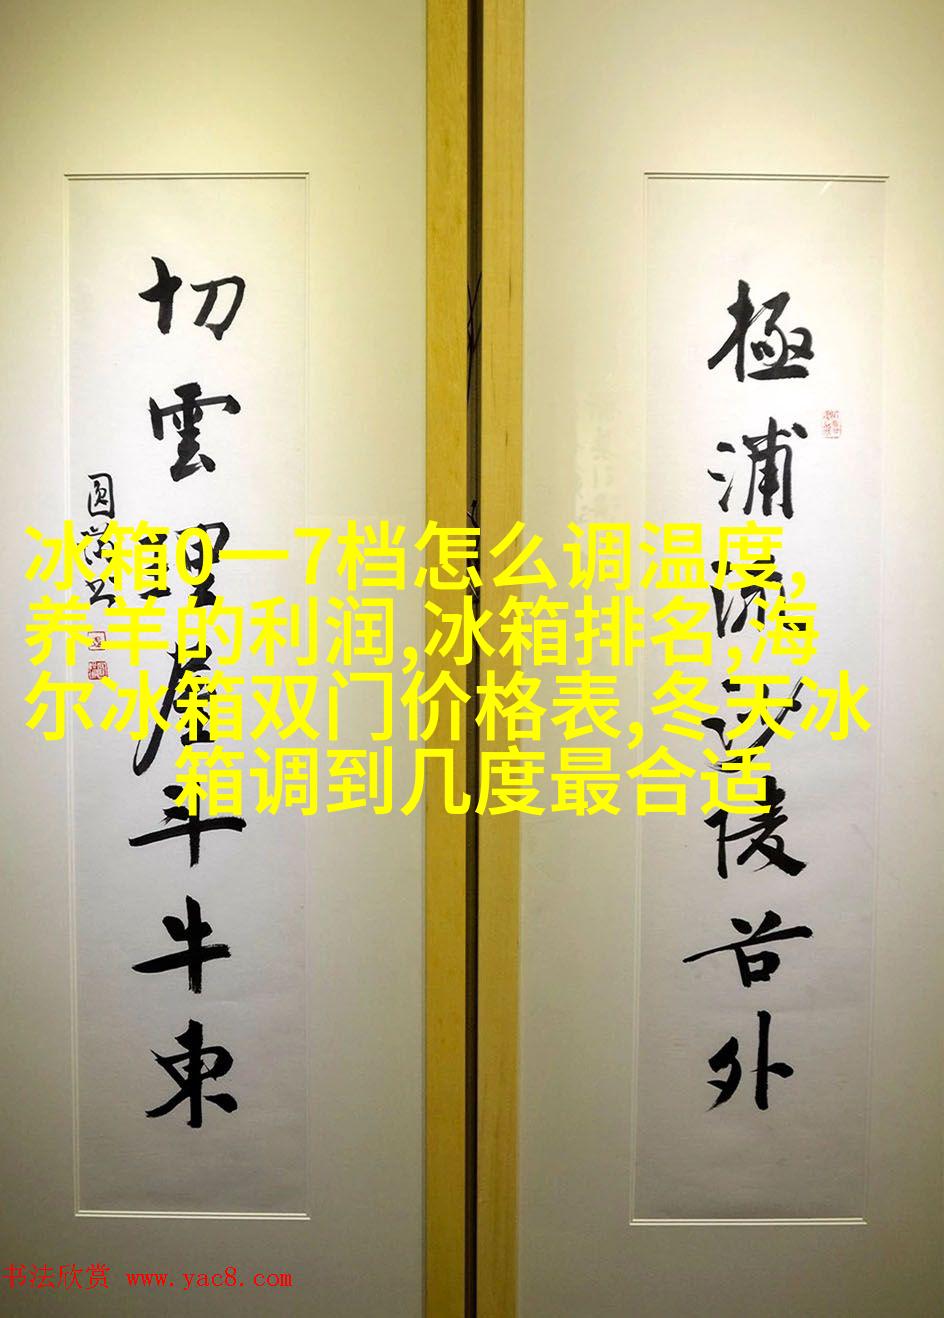 極浦陵谷外
切雲斗牛東
冰箱0一7档怎么调温度,
养羊的利润,冰箱排名,海
尔冰箱双门价格表,冬天冰
箱调到几度最合适
书法欣赏 www.yac8.com